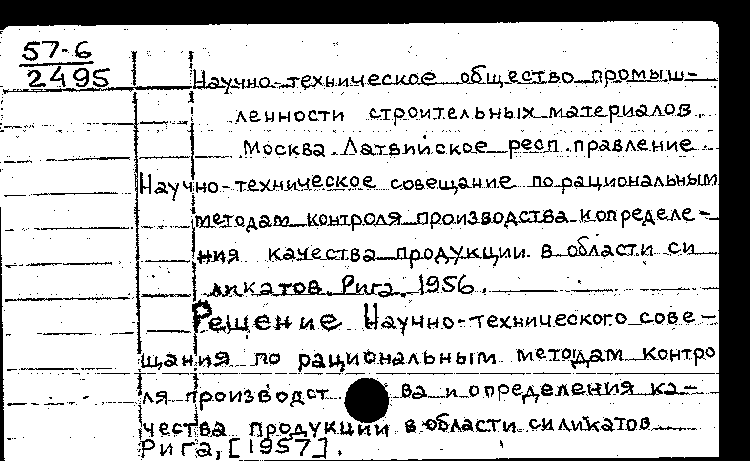 57-6
2495
Научно-техническое общество промыш-
ленности строительных материалов.
Москва. Латвийское респ. правление
Научно-техническое совещание по рациональным
методам контроля производства и определе-
ния качества продукции в области си
ликатов. Рига. 1956.
Решение Научно-технического сове-
щания по рациональным методам контро
ля производст ва и определения ка-
чества продукции в области силикатов
Рига, [1957].